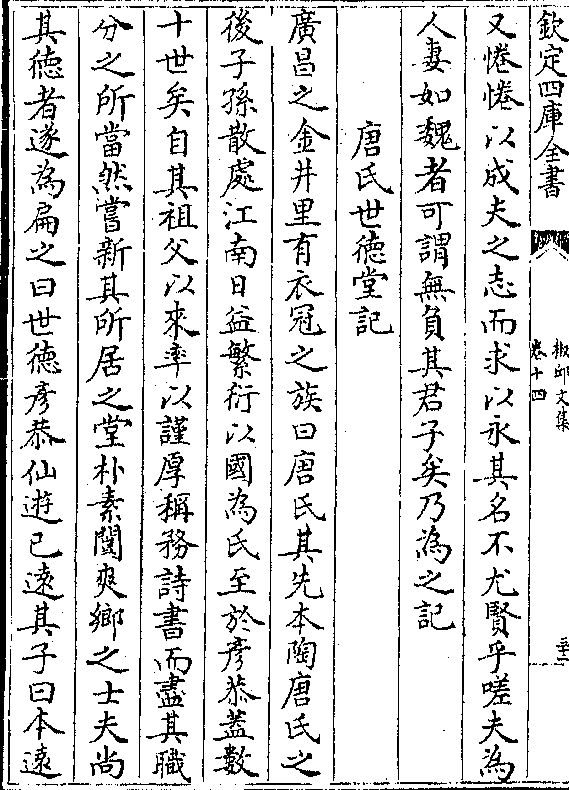 欽定四庫全書
椒邱文集
卷十四
三十二
又惓惓以成夫之志而求以永其名不尤賢乎嗟夫為
人妻如魏者可謂無負其君子矣乃為之記
唐氏世徳堂記
廣昌之金井里有衣冠之族曰唐氏其先本陶唐氏之
後子孫散處江南日益繁衍以國為氏至於彥恭蓋數
十世矣自其祖父以來率以謹厚稱務詩書而盡其職
分之所當然嘗新其所居之堂朴素闓爽鄉之士夫尚
其徳者遂為扁之曰世徳彥恭仙逰已遠其子曰本遠